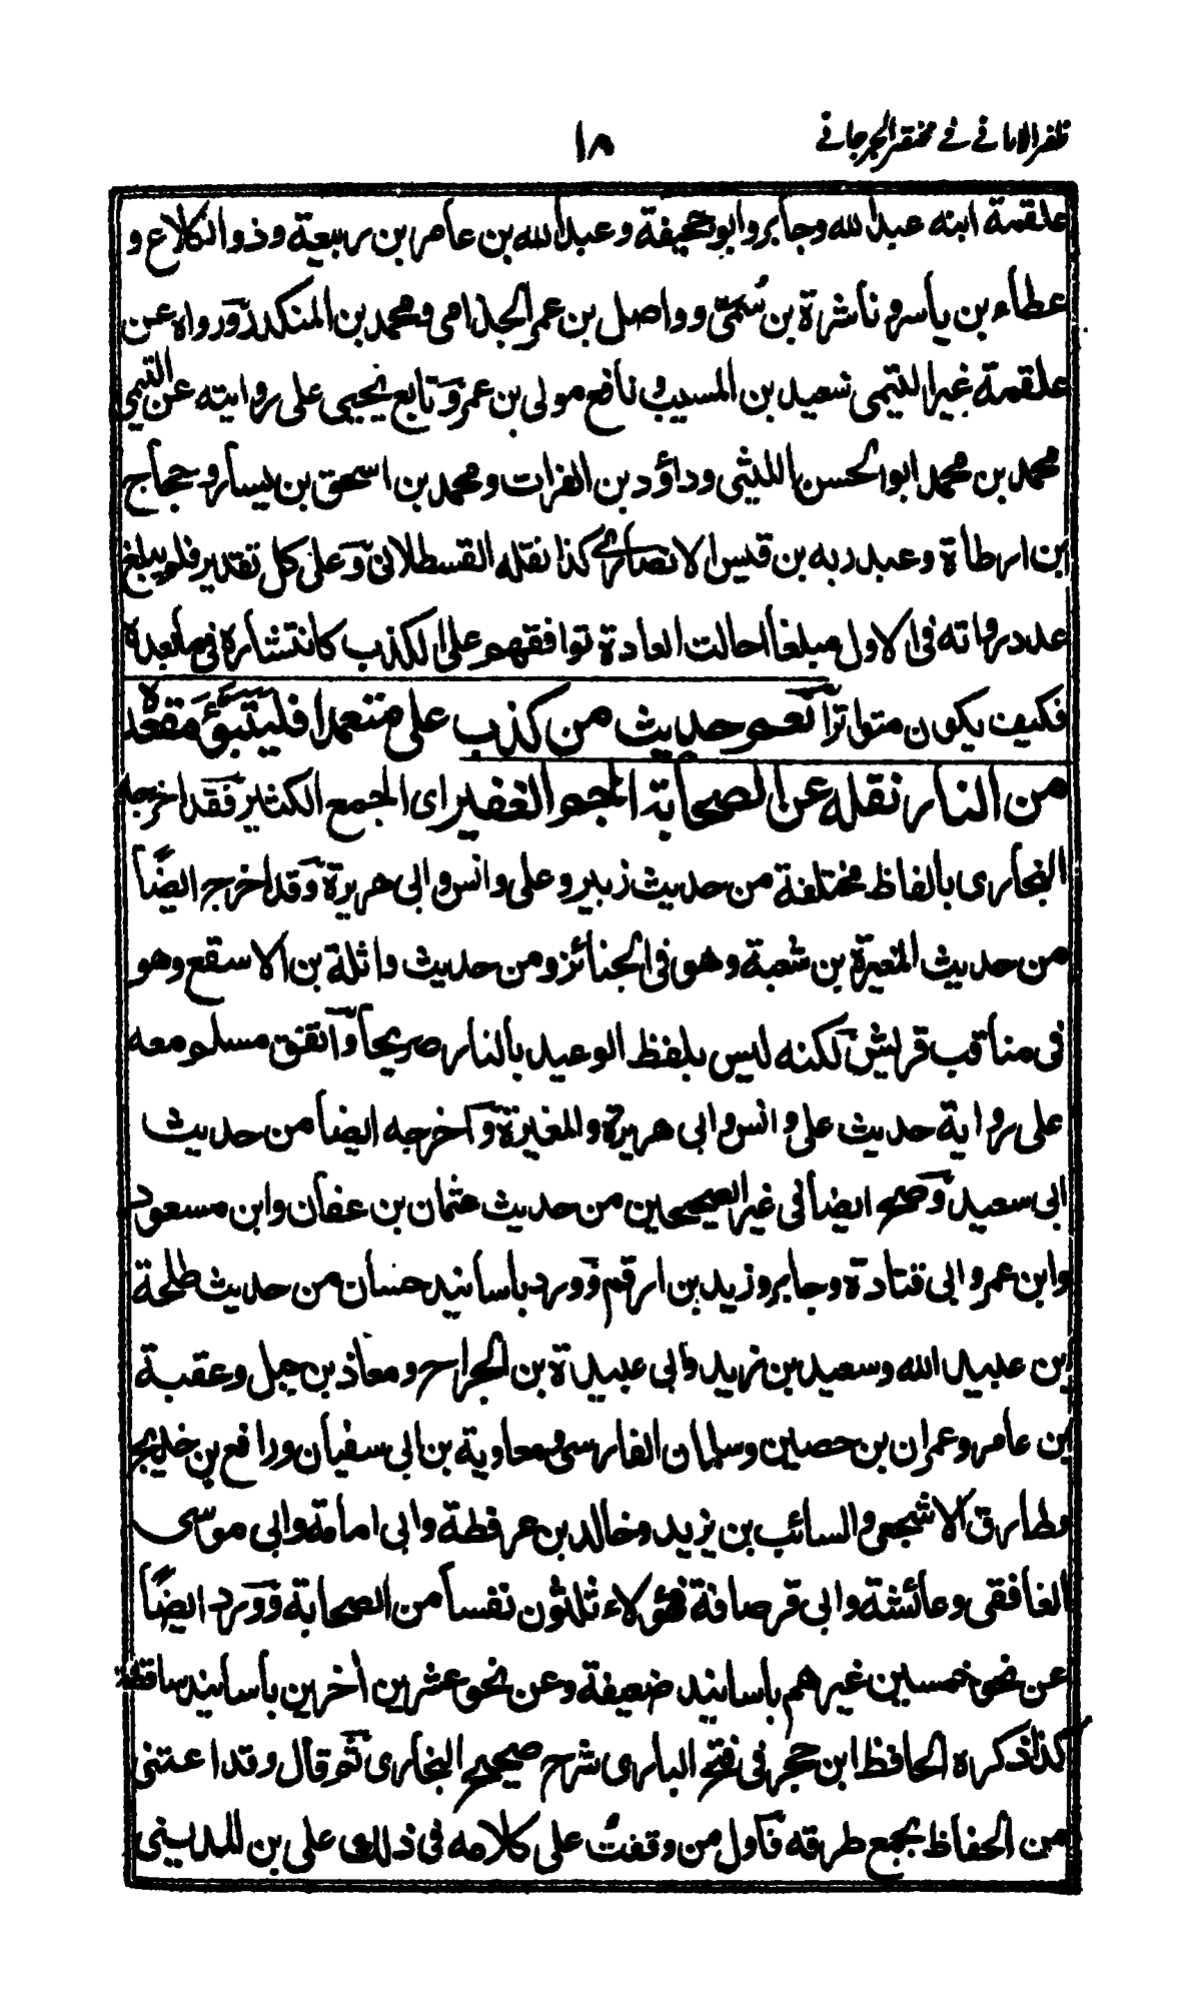 ظفر الامانی فی مختصر الجرجانی
١٨
علقمة ابنه عبد الله وجابر وابو جحيفة وعبد الله بن عامر بن ربيعة وذو الكلاع و
عطاء بن ياسر و ناشرة بن سُمَىّ وواصل بن عمر الجذامى ومحمد بن المنكدر ورواه عن
علقمة غير التيمى سعيد بن المسيب و نافع مولى بن عمر وتابع يحيى على روايته عن التيمى
محمد بن محمد ابو الحسن الليثى وداؤد بن الفرات ومحمد بن اسحق بن يسار وحجاج
ابن ارطاة وعبد ربه بن قيس الانصارى كذا نقله القسطلانى وعلى كل تقدير فلو يبلغ
عدد رواته فى الاول مبلغا احالت العادة توافقهم على الكذب كانتشاره فى ما بعده
فكيف يكون متواترا نعم حديث من كذب على متعمدا فليتبوّئ مقعده
من النار نقله عن الصحابة الجم الغفير اى الجمع الكثير فقد اخرجه
البخارى بالفاظ مختلفة من حديث زبير وعلى وانس وابى هريرة وقد اخرج ايضًا
من حديث المغيرة بن شعبة وهو فى الجنائز ومن حديث واثلة بن الاسقع وهو
فى مناقب قريش لكنه ليس بلفظ الوعيد بالنار صريحا واتفق مسلم معه
على رواية حديث على وانس وابى هريرة والمغيرة واخرجه ايضا من حديث
ابى سعيد وصح ايضا فى غير الصحيحين من حديث عثمان بن عفان وابن مسعود
وابن عمر وابى قتادة وجابر وزيد بن ارقم وورد باسانيد حسان من حديث طلحة
ابن عبيد الله وسعيد بن زيد وابى عبيدة بن الجراح ومعاذ بن جبل وعقبة
ابن عامر وعمران بن حصين وسلمان الفارسى ومعاوية بن ابى سفيان ورافع بن خديج
وطارق الاشجعى والسائب بن يزيد وخالد بن عرفطة وابى امامة وابى موسى
الغافقى وعائشة وابى قرصافة فهؤلاء ثلثون نفسا من الصحابة وورد ايضًا
عن نحو خمسين غيرهم باسانيد ضعيفة وعن نحو عشرين اخرين باسانيد ساقطة
كذا ذكره الحافظ ابن حجر فى فتح البارى شرح صحيح البخارى ثم قال وقد اعتنى
من الحفاظ بجمع طرقه فاول من وقفت على كلامه فى ذلك على بن المدينى